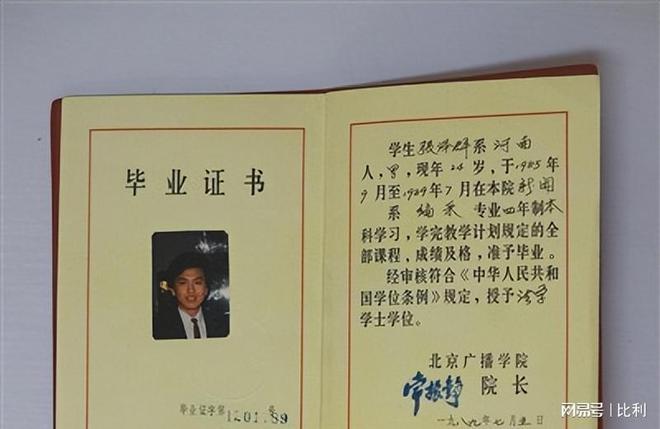 毕业证书
毕业证字第1201.89号
学生张泽群系河南
人，男，现年24岁，于1985年
9月至1989年7月在本院新闻
系编采专业四年制本
科学习，学完教学计划规定的全
部课程，成绩及格，准予毕业。
经审核符合《中华人民共和
国学位条例》规定，授予法学
学士学位。
北京广播学院
常振铮院长
一九八九年七月五日
网易号 | 比利